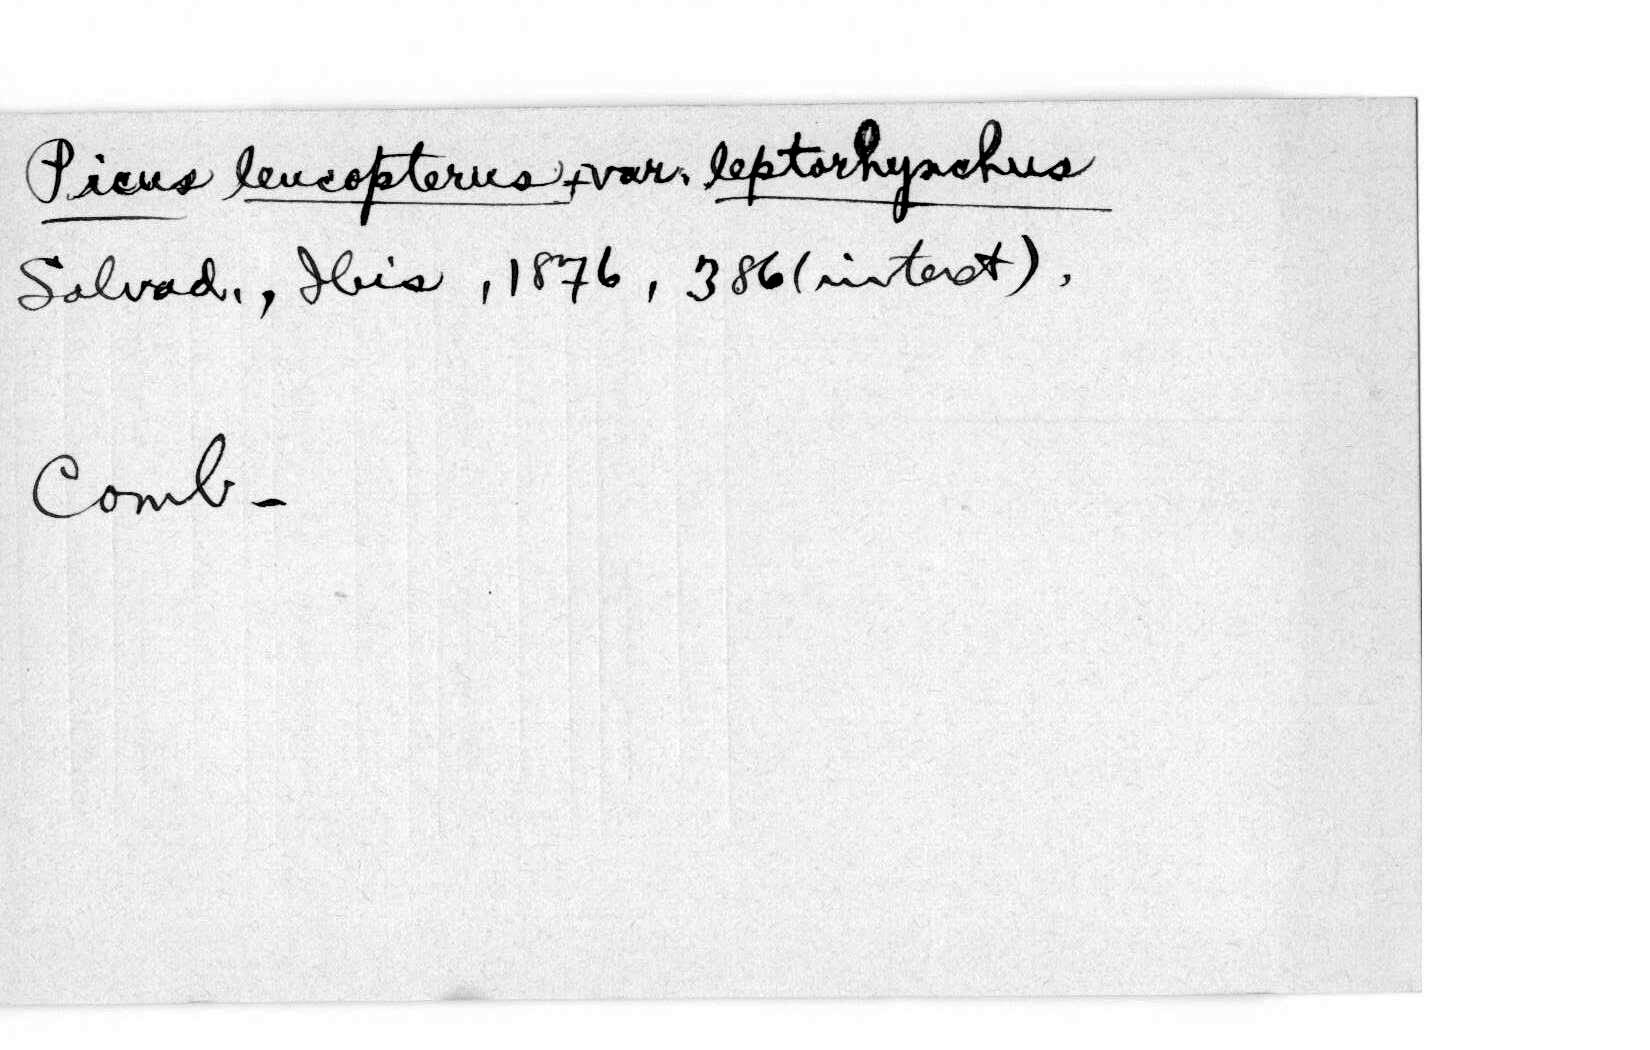 Picus leucopterus, var. leptorhynchus
Salvad., Ibis, 1876, 386 (in text).
Comb-